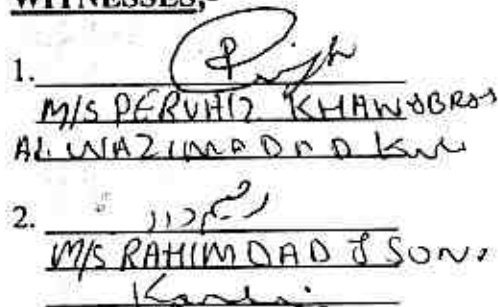 WITNESSES;-
1.
M/S PERVAIZ KHAN & BROS
AL WAZIMADAD
2. رحیم داد
M/S RAHIMDAD & SONS
Karachi